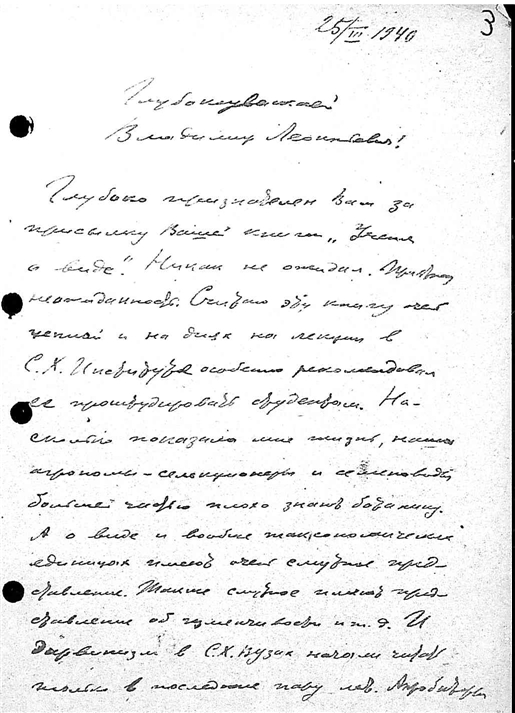 25/III 1940
3
Глубокоуважаемый
Владимир Леонтьевич!
Глубоко признателен Вам за
присылку Вашей книги „Учение
о виде“. Никак не ожидал. Приятная
неожиданность. Считаю эту книгу очень
ценной и на днях на лекции в
С.Х. Институте особенно рекомендовал
ее проштудировать студентам. На-
сколько показала мне жизнь, наши
агрономы-селекционеры и семеноводы
большей частью плохо знают ботанику.
А о виде и вообще таксономических
единицах имеют очень смутное пред-
ставление. Также смутное имеют пред-
ставление об изменчивости и т.д. И
Дарвинизм в С.Х. Вузах начали читать
только в последние пару лет.